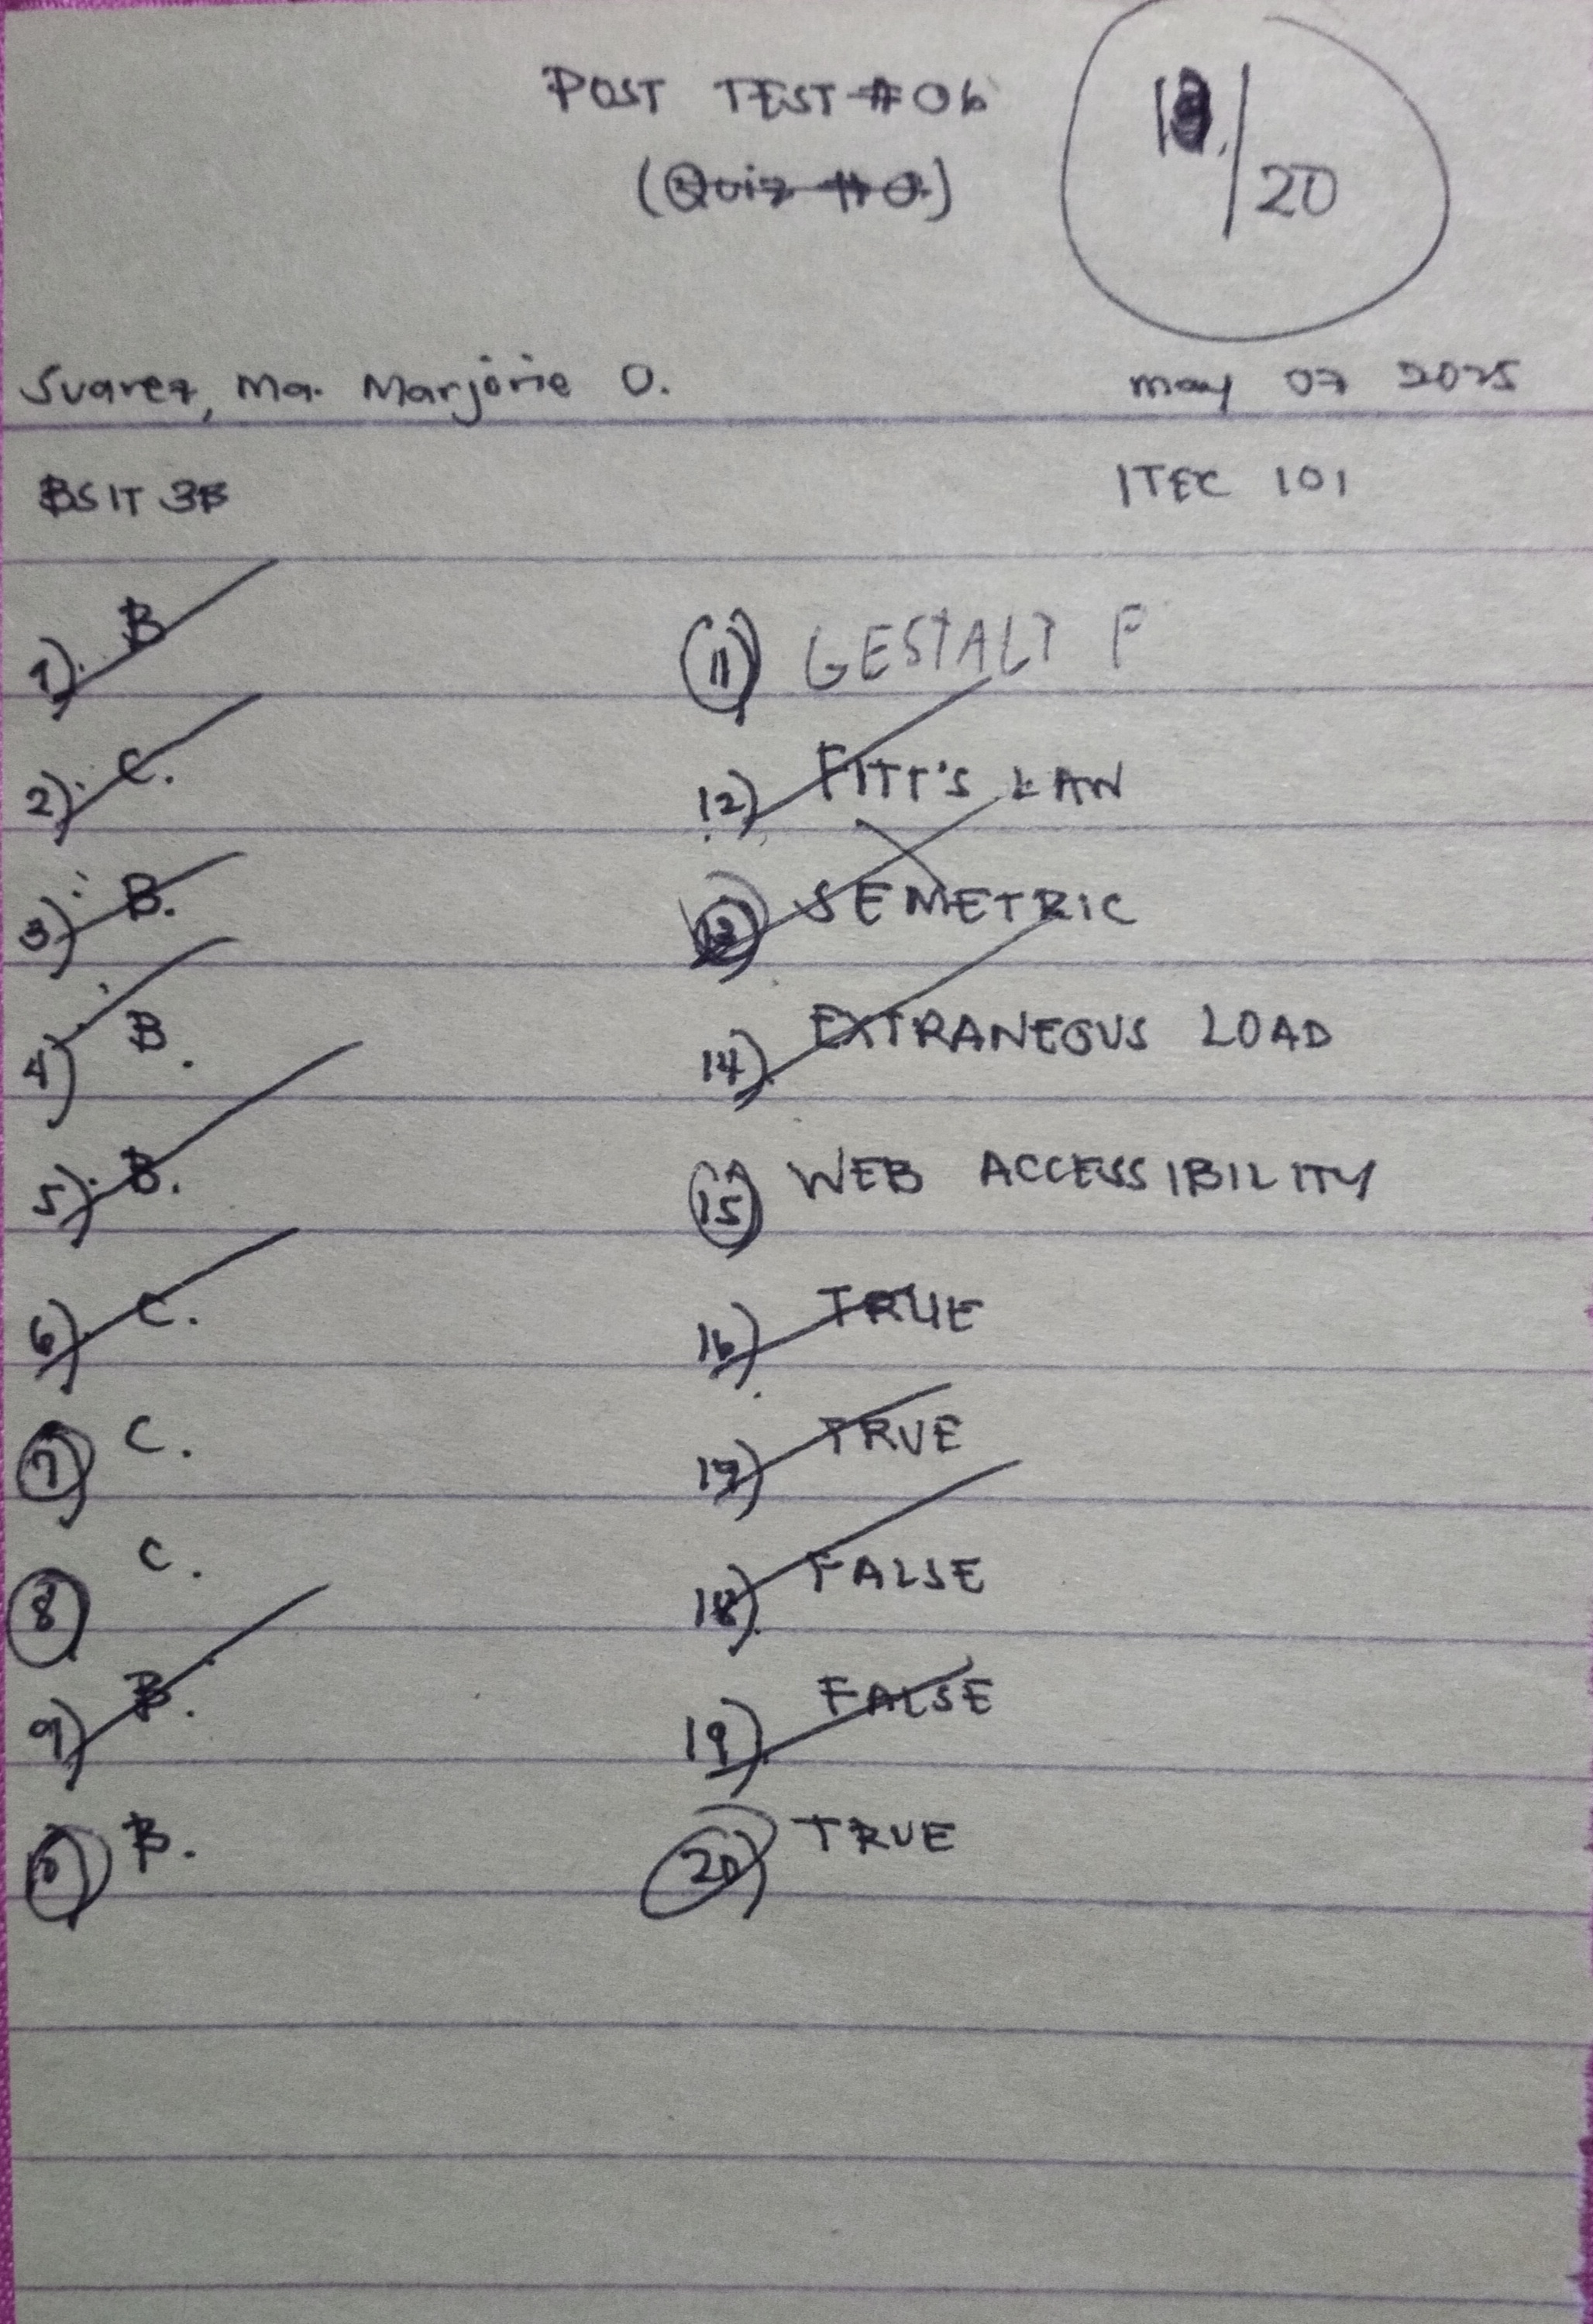 POST TEST #06
(Quiz #0.)
/20
Suarez, Ma. Marjorie O.
may 07 2025
BSIT 3B
ITEC 101
1). B
2). C.
3) B.
4) B.
5). B.
6) C.
7) C.
8 C.
9) B.
10) B.
11) GESTALT P
12) FITT'S LAW
13) SEMETRIC
14). EXTRANEOUS LOAD
15) WEB ACCESSIBILITY
16) TRUE
17) TRUE
18). FALSE
19). FALSE
20) TRUE